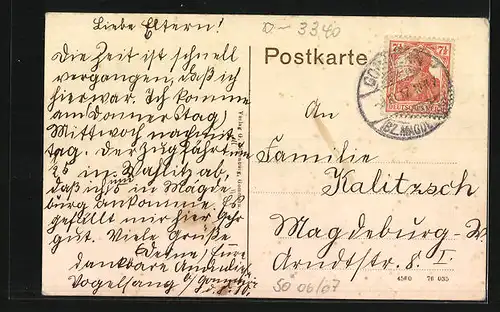 Liebe Eltern!
Die Zeit ist schnell
vergangen, daß ich
hier war. Ich komme
am Donnerstag,
Mittwoch nachmit
tag. Der Zug fährt um
in Wahlitz ab,
daß ich in Magde
burg ankomme. Es
gefällt mir hier sehr
gut. Viele Grüße
Deine, Eure
dankbare
Vogelsang b/Gommern
D- 3340
Postkarte
DEUTSCHES REICH
7½
An
Familie
Kalitzsch
Magdeburg-W.
Arndtstr. 8 I.
4560 76 035
SO 06/07